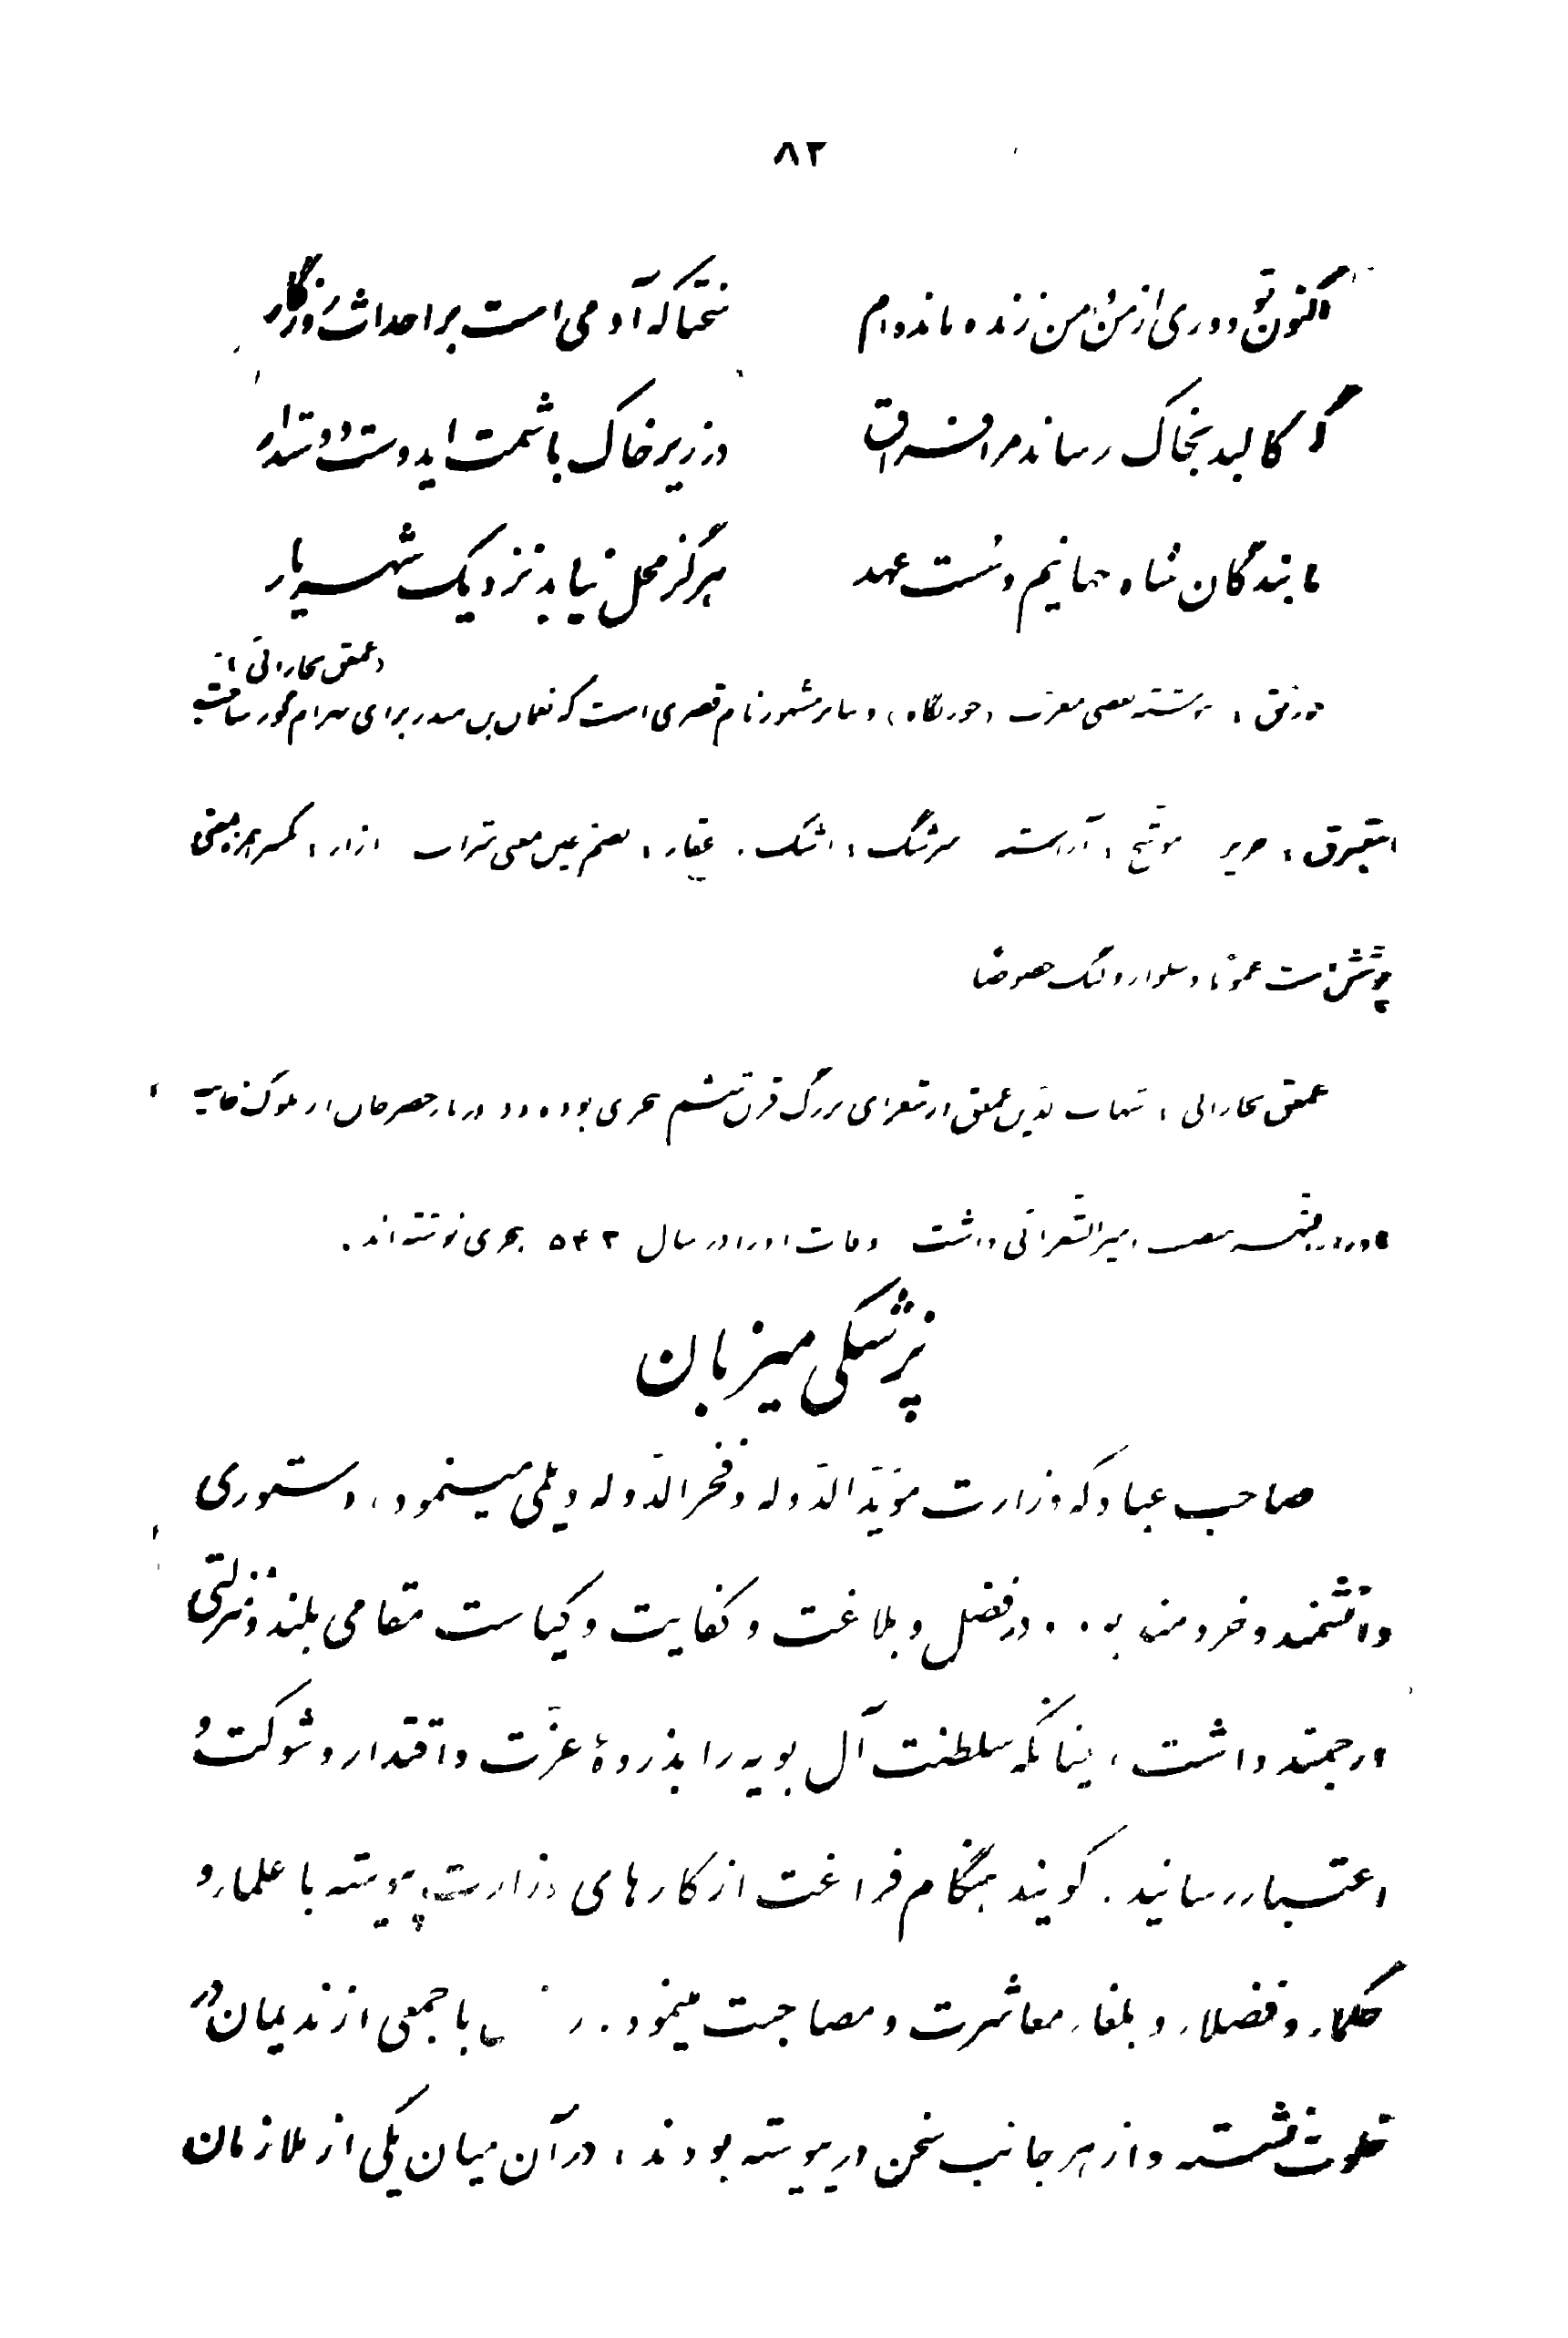 ۸۲
اکنون تو دوری از من و من زنده مانده‌ام    سختا که آدمی است بر احداث روزگار
گر کالبد بخاک رساند مرا فراق    در زیر خاک باشمت ایدوست دوستدار
ما بندگان شاه جهانیم و سُست عهد    هرگز محل نیابد نزدیک شهریار
(عمعق بخارائی)
خورنق : معرب (خورنگاه) و بنابر مشهور نام قصری است که نعمان بن منذر برای بهرام گور ساخت
استبرق : حریر    موشّح : آراسته    سرشگ : اشک .    عقار : بضم عین بمعنی شراب    ازار : بکسر همزه بمعنی
پوشش است عموماً و شلوار و لنگ خصوصاً
عمعق بخارائی : شهاب الدّین عمعق از شعرای بزرگ قرن ششم هجری بوده و در دربار خضرخان از ملوک خانیه
منصب امیرالشّعرائی داشت وفات او را در سال ۵۴۲ هجری نوشته‌اند .
پزشکی میزبان
صاحب عباد که وزارت مؤیّدالدّوله و فخرالدّوله دیلمی مینمود ، دستوری
دانشمند و خردمند بود . در فضل و بلاغت و کفایت و کیاست مقامی بلند و منزلتی
ارجمند داشت ، چنانکه سلطنت آل بویه را بذروهٔ عزّت و اقتدار و شوکت و
اعتبار رسانید . گویند هنگام فراغت از کارهای وزارت پیوسته با علماء و
حکماء و فضلاء و بلغاء معاشرت و مصاحبت مینمود . با جمعی از ندیمان در
خلوت نشسته و از هر جانب سخن در پیوسته بودند ، در آن میان یکی از ملازمان